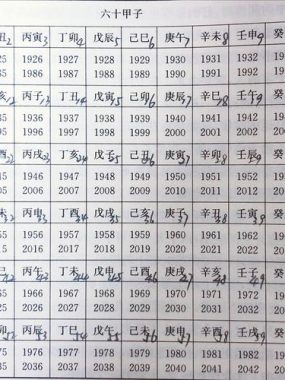 六十甲子
丑2 丙寅3 丁卯4 戊辰5 己巳6 庚午7 辛未8 壬申9 癸
25 1926 1927 1928 1929 1930 1931 1932
85 1986 1987 1988 1989 1990 1991 1992
亥12 丙子13 丁丑14 戊寅15 己卯16 庚辰17 辛巳18 壬午19 癸
35 1936 1937 1938 1939 1940 1941 1942
95 1996 1997 1998 1999 2000 2001 2002
酉22 丙戌23 丁亥24 戊子25 己丑26 庚寅27 辛卯28 壬辰29 癸
45 1946 1947 1948 1949 1950 1951 1952
05 2006 2007 2008 2009 2010 2011 2012
未32 丙申33 丁酉34 戊戌35 己亥36 庚子37 辛丑38 壬寅39 癸
55 1956 1957 1958 1959 1960 1961 1962
15 2016 2017 2018 2019 2020 2021 2022
巳 丙午43 丁未44 戊申45 己酉46 庚戌47 辛亥48 壬子49 癸
65 1966 1967 1968 1969 1970 1971 1972
25 2026 2027 2028 2029 2030 2031 2032
卯52 丙辰53 丁巳54 戊午55 己未56 庚申57 辛酉58 壬戌59 癸
75 1976 1977 1978 1979 1980 1981 1982
35 2036 2037 2038 2039 2040 2041 2042